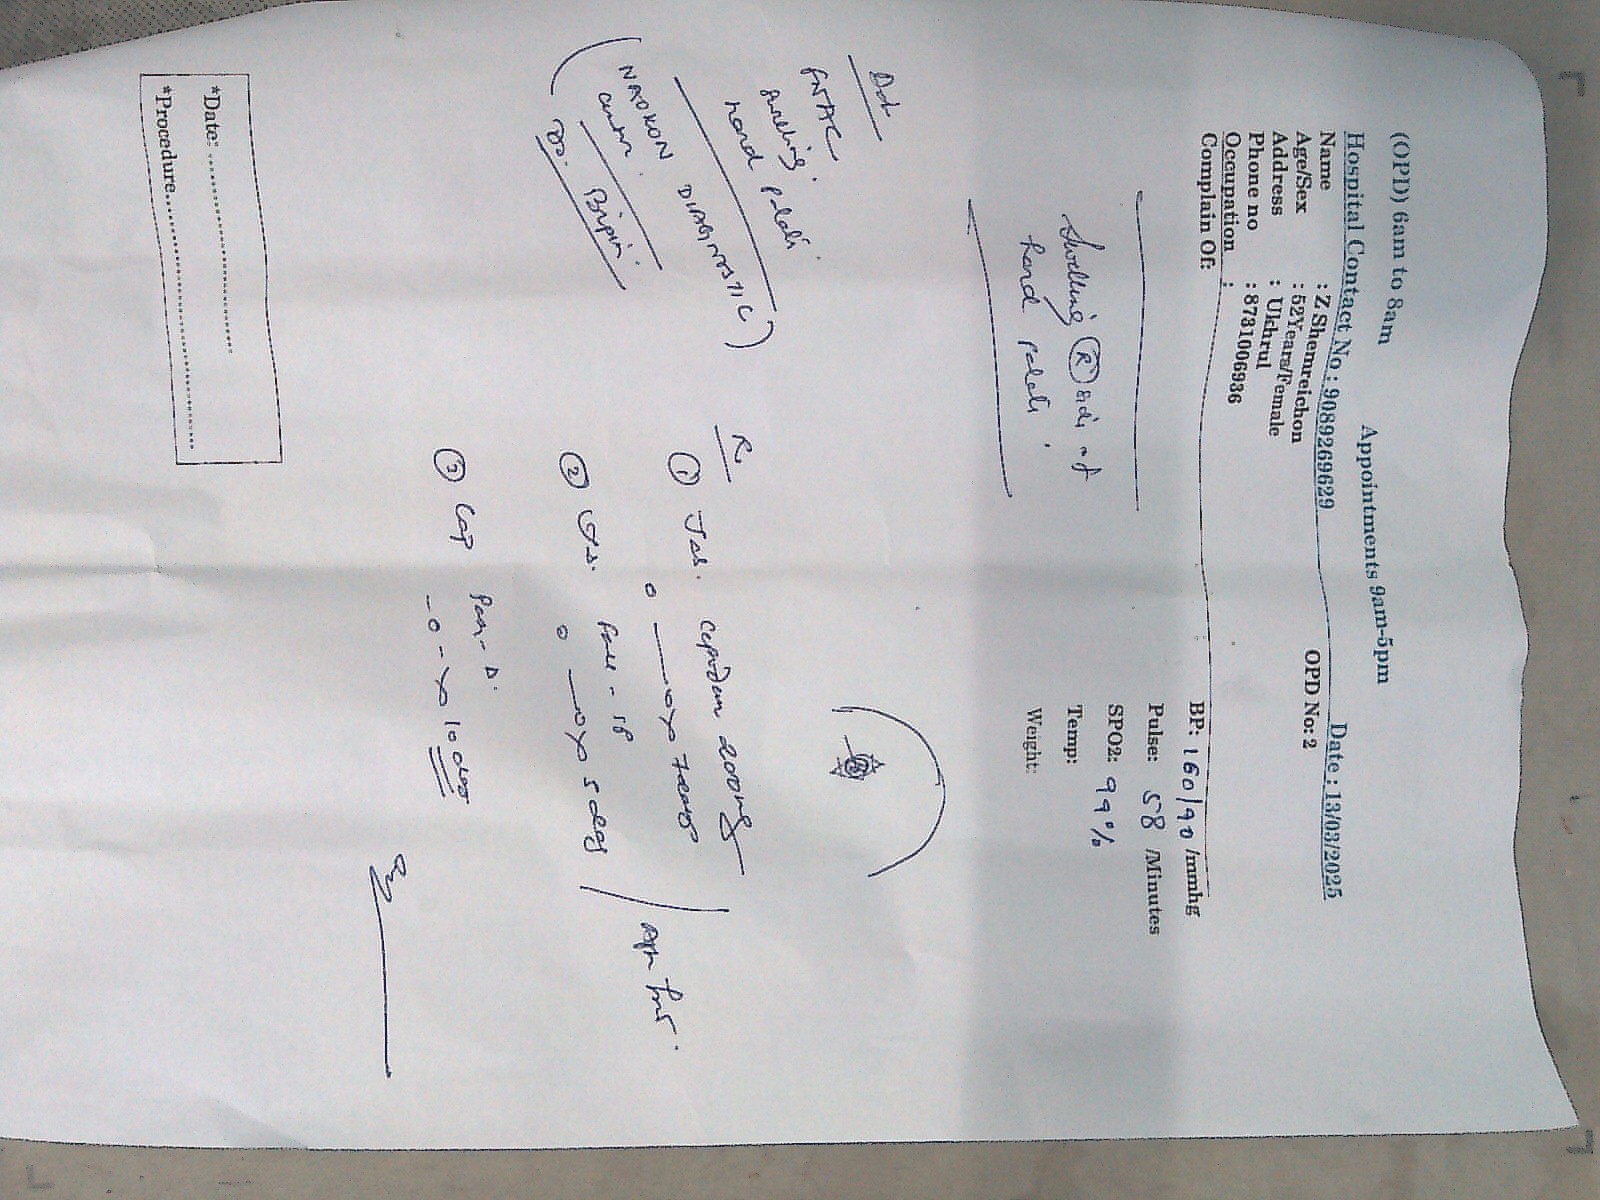 (OPD) 6am to 8am Appointments 9am-5pm
Hospital Contact No : 9089269629 Date : 13/03/2025
Name : Z Shemreichon OPD No: 2
Age/Sex : 52Years/Female
Address : Ukhrul
Phone no : 8731006936
Occupation :
Complain Of:
BP: 160/90 /mmhg
Pulse: 58 /Minutes
SPO2: 99%
Temp:
Weight:
Swelling (R) side of
hard palate.
FNAC
swelling.
hard palate.
(NAOKON DIAGINOSTIC)
Dr. Bipin
R
① Tab. 200mg
o — o x 7 days
②
o — o x 5 days
③ Cap Pan-D.
- o - x 10 days
*Date:
*Procedure